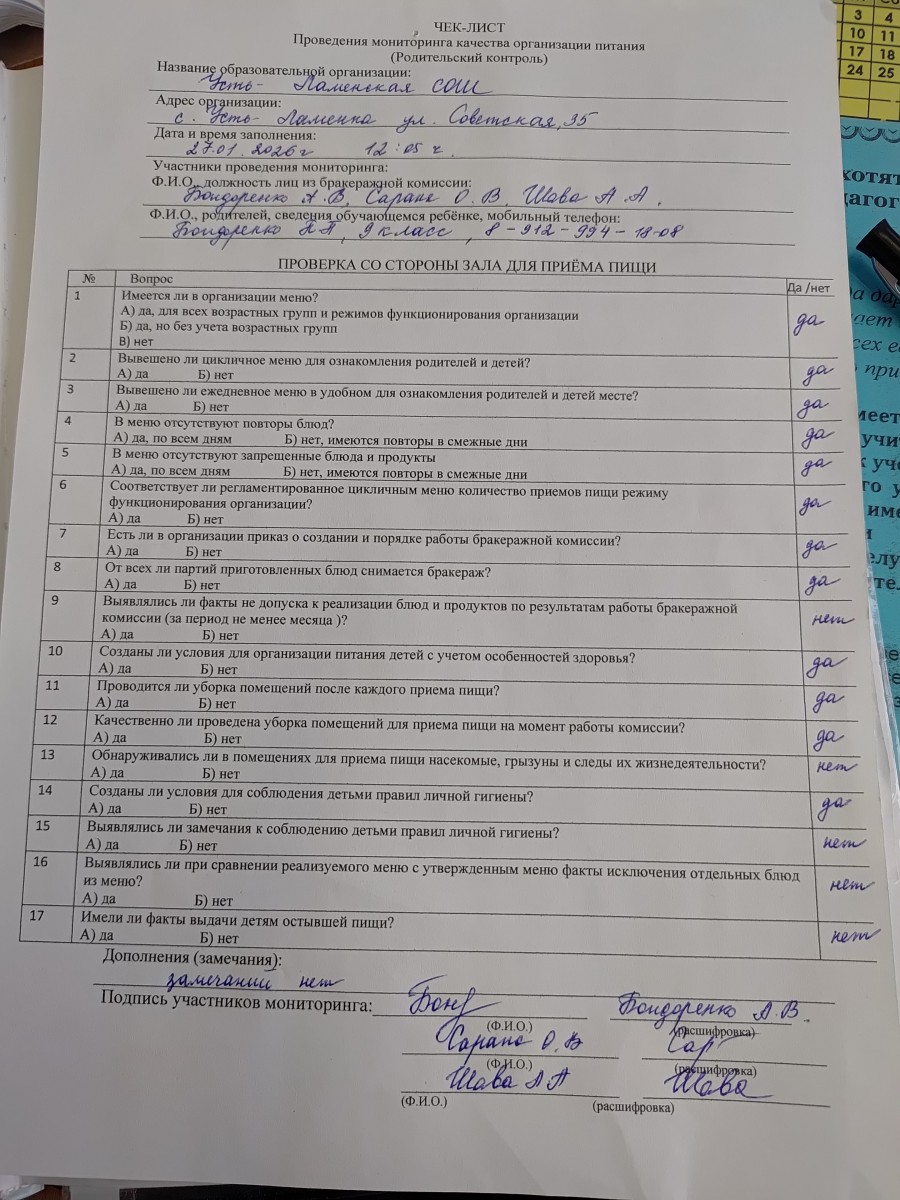 ЧЕК-ЛИСТ
Проведения мониторинга качества организации питания
(Родительский контроль)
Название образовательной организации:
Усть-Ламенская СОШ
Адрес организации:
с. Усть-Ламенка ул. Советская, 35
Дата и время заполнения:
27.01.2026г 12:05 ч.
Участники проведения мониторинга:
Ф.И.О., должность лиц из бракеражной комиссии:
Бондоренко А.В, Сарапа О.В, Шава А.А.
Ф.И.О., родителей, сведения обучающемся ребёнке, мобильный телефон:
Бондоренко 9 класс, 8-912-994-18-08
ПРОВЕРКА СО СТОРОНЫ ЗАЛА ДЛЯ ПРИЁМА ПИЩИ
№ Вопрос Да /нет
1 Имеется ли в организации меню?
А) да, для всех возрастных групп и режимов функционирования организации да
Б) да, но без учета возрастных групп
В) нет
2 Вывешено ли цикличное меню для ознакомления родителей и детей?
А) да Б) нет да
3 Вывешено ли ежедневное меню в удобном для ознакомления родителей и детей месте?
А) да Б) нет да
4 В меню отсутствуют повторы блюд?
А) да, по всем дням Б) нет, имеются повторы в смежные дни да
5 В меню отсутствуют запрещенные блюда и продукты
А) да, по всем дням Б) нет, имеются повторы в смежные дни да
6 Соответствует ли регламентированное цикличным меню количество приемов пищи режиму
функционирования организации? да
А) да Б) нет
7 Есть ли в организации приказ о создании и порядке работы бракеражной комиссии?
А) да Б) нет да
8 От всех ли партий приготовленных блюд снимается бракераж?
А) да Б) нет да
9 Выявлялись ли факты не допуска к реализации блюд и продуктов по результатам работы бракеражной
комиссии (за период не менее месяца )? нет
А) да Б) нет
10 Созданы ли условия для организации питания детей с учетом особенностей здоровья?
А) да Б) нет да
11 Проводится ли уборка помещений после каждого приема пищи?
А) да Б) нет да
12 Качественно ли проведена уборка помещений для приема пищи на момент работы комиссии?
А) да Б) нет да
13 Обнаруживались ли в помещениях для приема пищи насекомые, грызуны и следы их жизнедеятельности?
А) да Б) нет нет
14 Созданы ли условия для соблюдения детьми правил личной гигиены?
А) да Б) нет да
15 Выявлялись ли замечания к соблюдению детьми правил личной гигиены?
А) да Б) нет нет
16 Выявлялись ли при сравнении реализуемого меню с утвержденным меню факты исключения отдельных блюд
из меню? нет
А) да Б) нет
17 Имели ли факты выдачи детям остывшей пищи?
А) да Б) нет нет
Дополнения (замечания):
замечаний нет
Подпись участников мониторинга: Бонд Бондоренко А.В.
(Ф.И.О.) (расшифровка)
Сарапа О.В Сар
(Ф.И.О.) (расшифровка)
Шава А А Шава
(Ф.И.О.) (расшифровка)
3 4
10 11
17 18
24 25